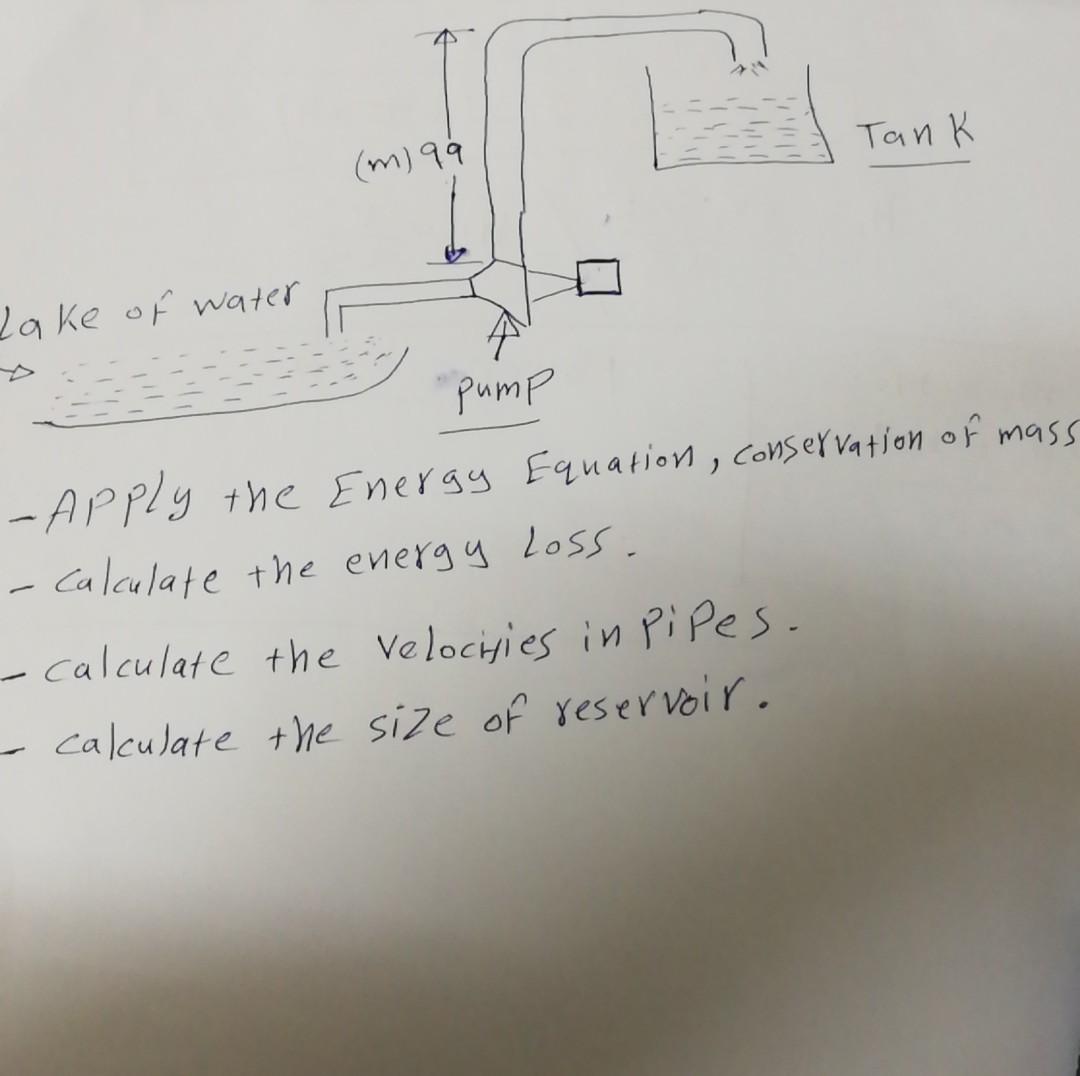 Tank
(m) 99
Lake of water
pump
- Apply the Energy Equation, conservation of mass
- calculate the energy Loss.
- calculate the Velocities in PiPes.
- calculate the size of reservoir.